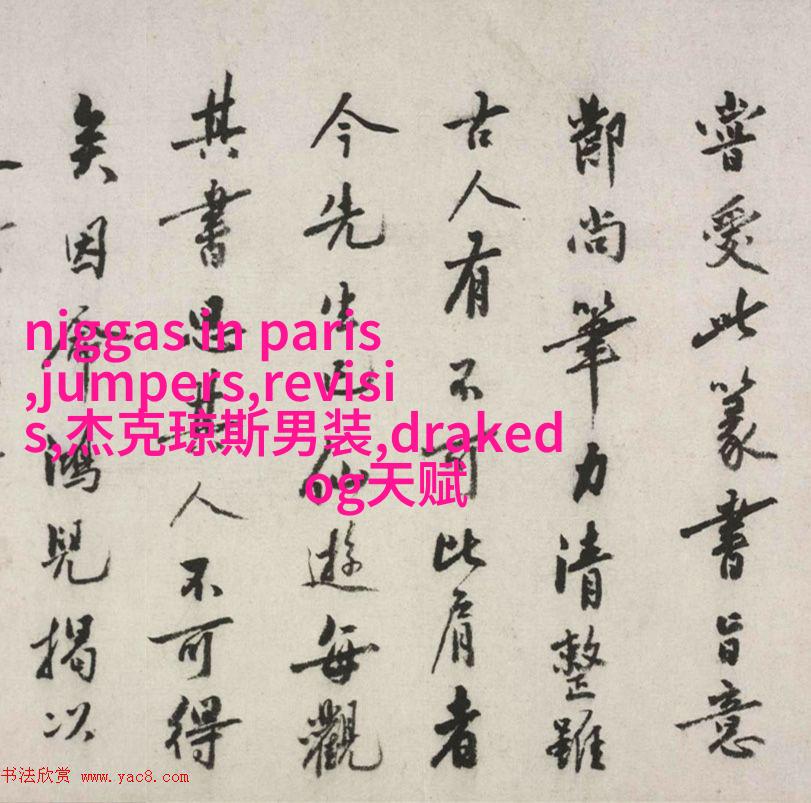 嘗愛此篆書旨意
尚筆力清整雖
古人有不可比肩者
今先生已仙遊每觀
其書思其人不可得
矣因鴻兒揭以
niggas in paris
,jumpers,revisi
s,杰克琼斯男装,draked
og天赋
书法欣赏 www.yac8.com